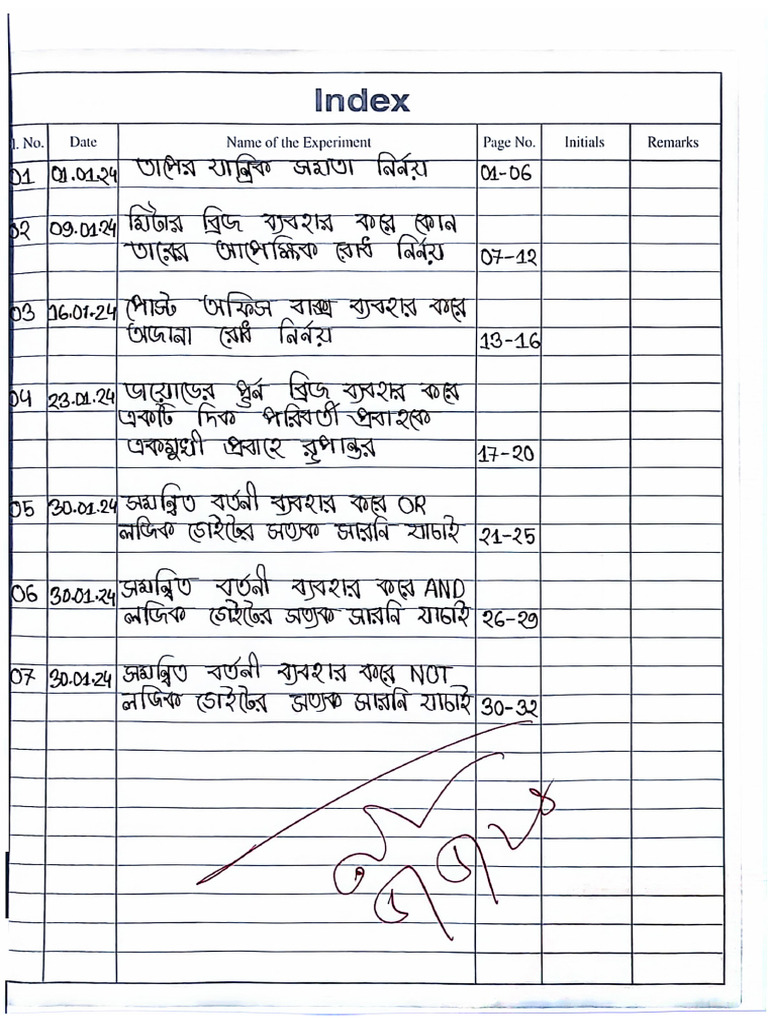 Index
l. No. Date Name of the Experiment Page No. Initials Remarks
01 01.01.24 তাপের যান্ত্রিক সমতা নির্নয় 01-06
02 09.01.24 মিটার ব্রিজ ব্যবহার করে কোন
তারের আপেক্ষিক রোধ নির্নয় 07-12
03 16.01.24 পোস্ট অফিস বাক্স ব্যবহার করে
অজানা রোধ নির্নয় 13-16
04 23.01.24 ডায়োডের পূর্ন ব্রিজ ব্যবহার করে
একটি দিক পরিবর্তী প্রবাহকে
একমুখী প্রবাহে রূপান্তর 17-20
05 30.01.24 সমন্বিত বর্তনী ব্যবহার করে OR
লজিক গেইটের সত্যক সারনি যাচাই 21-25
06 30.01.24 সমন্বিত বর্তনী ব্যবহার করে AND
লজিক গেইটের সত্যক সারনি যাচাই 26-29
07 30.01.24 সমন্বিত বর্তনী ব্যবহার করে NOT
লজিক গেইটের সত্যক সারনি যাচাই 30-32